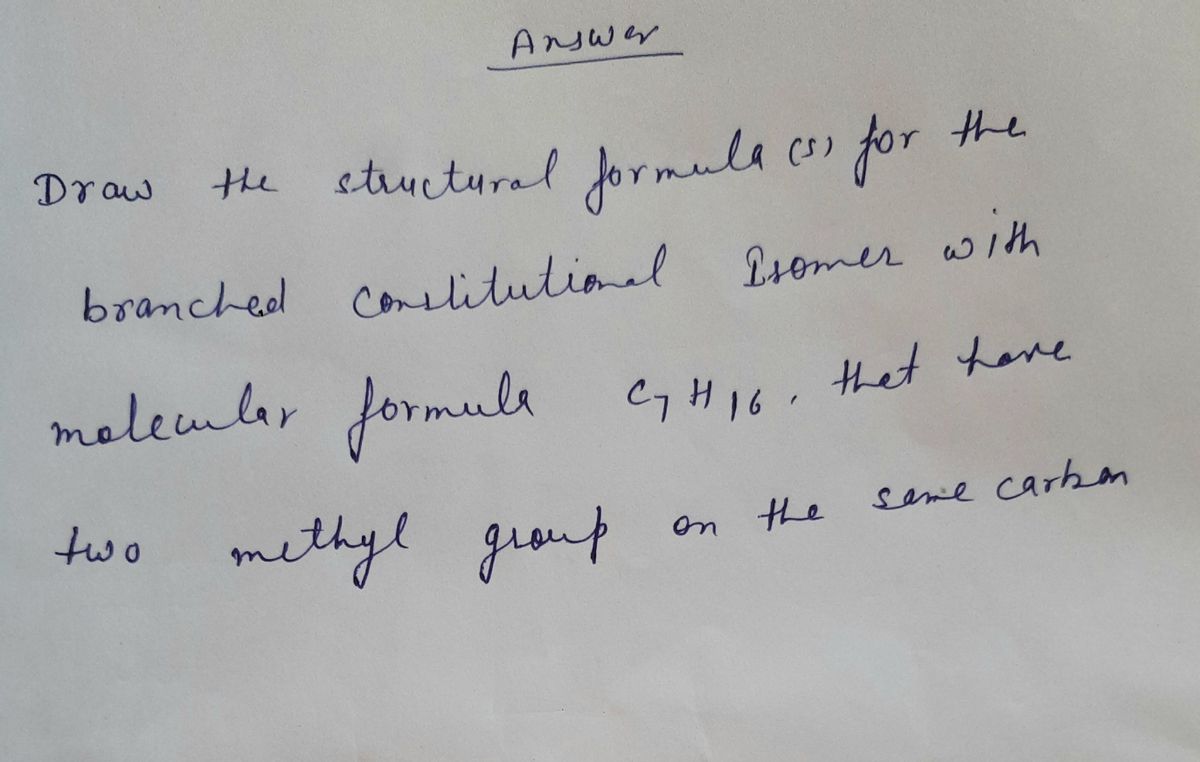 Answer
Draw the structural formula (s) for the
branched constitutional Isomer with
molecular formula C7H16, that have
two methyl group on the same carbon